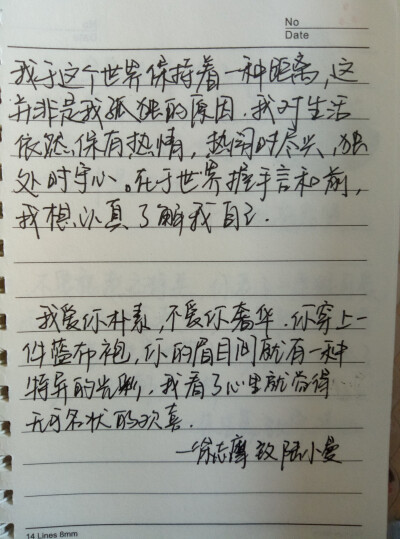 No
Date
我于这个世界保持着一种距离,这
并非是我孤独的原因.我对生活
依然保有热情,热闹时尽兴,独
处时守心。在于世界握手言和前,
我想认真了解我自己.
我爱你朴素,不爱你奢华.你穿上一
件蓝布袍,你的眉目间就有一种
特异的光彩,我看了心里就觉得
无可名状的欢喜.
—徐志摩致陆小曼
14 Lines 8mm